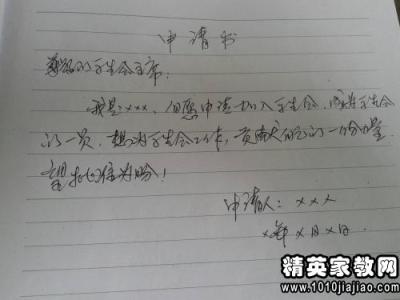 申请书
尊敬的学生会主席：
我是×××，自愿申请加入学生会，成为学生会
的一员，想为学生会工作，贡献自己的一份力量。
望批准为盼！
申请人：×××
×年×月×日
精英家教网
www.1010jiajiao.com